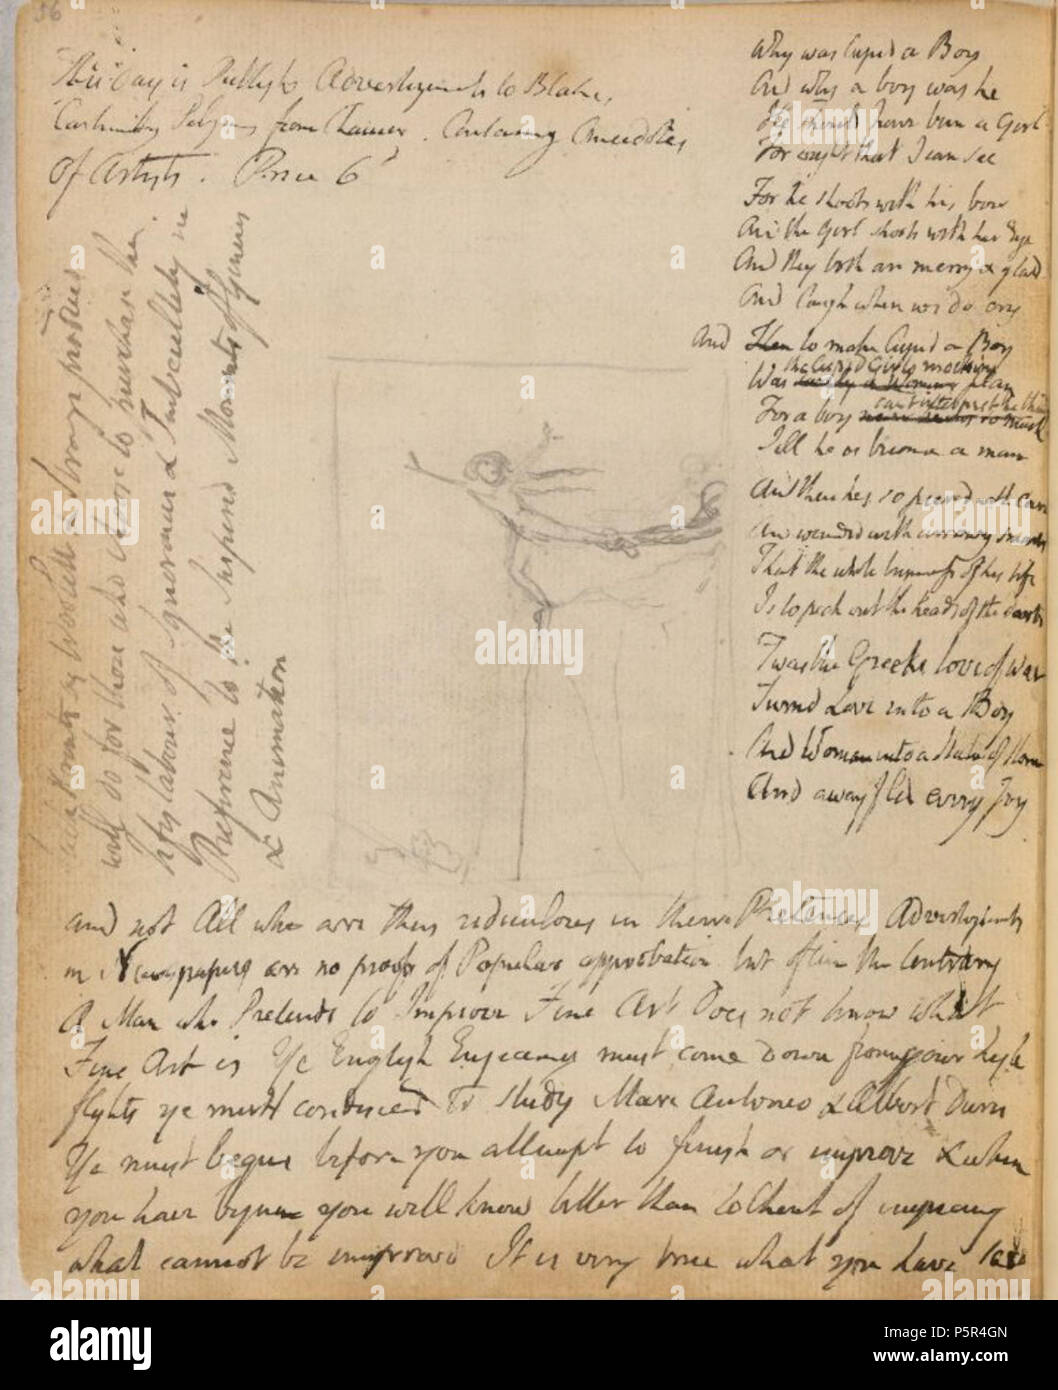 56
This day is Publishd Advertizements to Blakes
Canterbury Pilgrims from Chaucer. Containing Anecdotes
of Artists. Price 6d
Why was Cupid a Boy
And why a boy was he
He should have been a Girl
For ought that I can see
For he shoots with his bow
And the Girl shoots with her Eye
And they both are merry & glad
And laugh when we do cry
And Then to make Cupid a Boy
the Cupid Girls mocking
Was surely a Womans plan
cant interpret the thing
For a boy never learns so much
Till he is become a man
And then hes so piercd with care
And wounded with arrowy smarts
That the whole business of his life
Is to pick out the heads of the darts
Twas the Greeks love of war
Turnd Love into a Boy
And Woman into a Statue of Stone
And away fled every Joy
will do for those who choose to purchase the
Life labour of Ignorance & Imbecillity in
Preference to the Inspired Moments of Genius
& Animation
and not All who are thus ridiculous in their Pretences Advertizements
in Newspapers are no proofs of Popular approbation but often the Contrary
A Man who Pretends to Improve Fine Art Does not know what
Fine Art is Ye English Engravers must come down from your high
flights ye must condescend to study Marc Antonio & Albert Durer
Ye must begin before you attempt to finish or improve & when
you have begun you will know better than to think of improving
what cannot be improvd It is very true what you have said
alamy
a
alamy stock photo
Image ID: P5R4GN
www.alamy.com